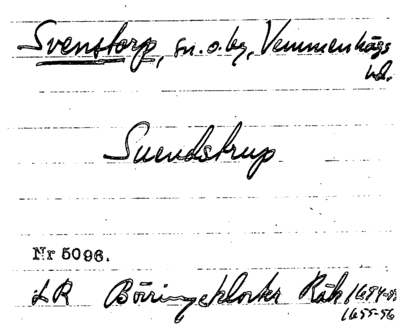 Svenstorp, sn. o. by, Vemmenhögs
hd.
Suendstrup
Nr 5096.
LR Börringekloster Räk 1684-85
1655-56